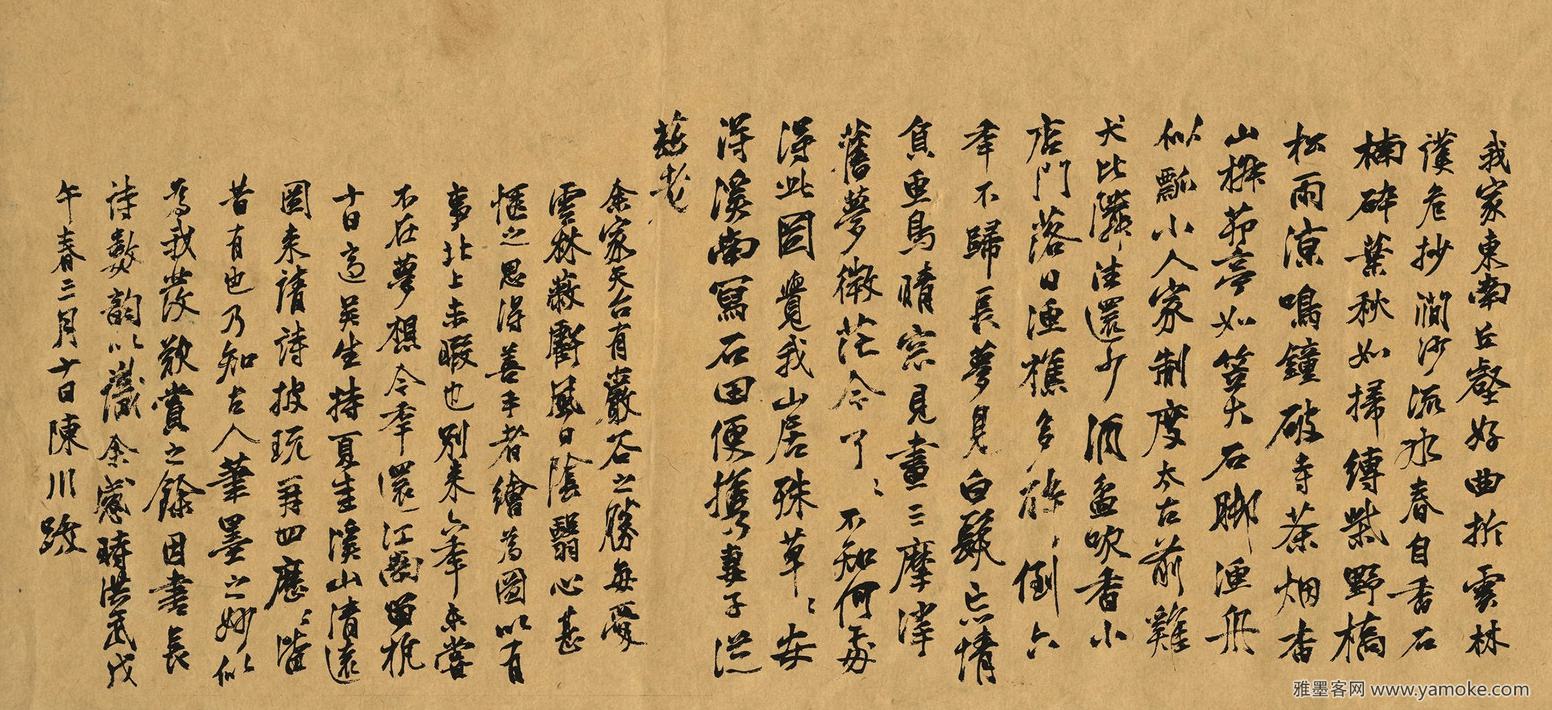 我家東南丘壑好曲折雲林
護危抄澗沙流水春自香石
楠碎葉秋如掃縛柴野橋
松雨涼鳴鐘破寺茶烟杏
山椒茆亭如笠大石脚漁舟
似瓢小人家制度太古前雞
犬比隣往還少酒盃吹香小
店門落日漁樵多醉倒六
年不歸長夢見白髮忘情
負魚鳥晴窓見畫三摩挲
舊夢微茫令了〻不知何處
得此圖覺我山居殊草〻安
得溪南寫石田便攜妻子從
茲老
余家天台有巖谷之勝每愛
雲林蔽虧風日陰翳心甚
愜之思得善手者繪為圖以有
事北上未暇也別來六年未嘗
不在夢想今年還江南留杭
十日適吳生持夏圭溪山清遠
圖來請詩披玩再四歷〻皆
昔有也乃知古人筆墨之妙似
為我發歎賞之餘因書長
詩數韻以識余感時洪武戊
午春二月十日陳川
雅墨客网 www.yamoke.com